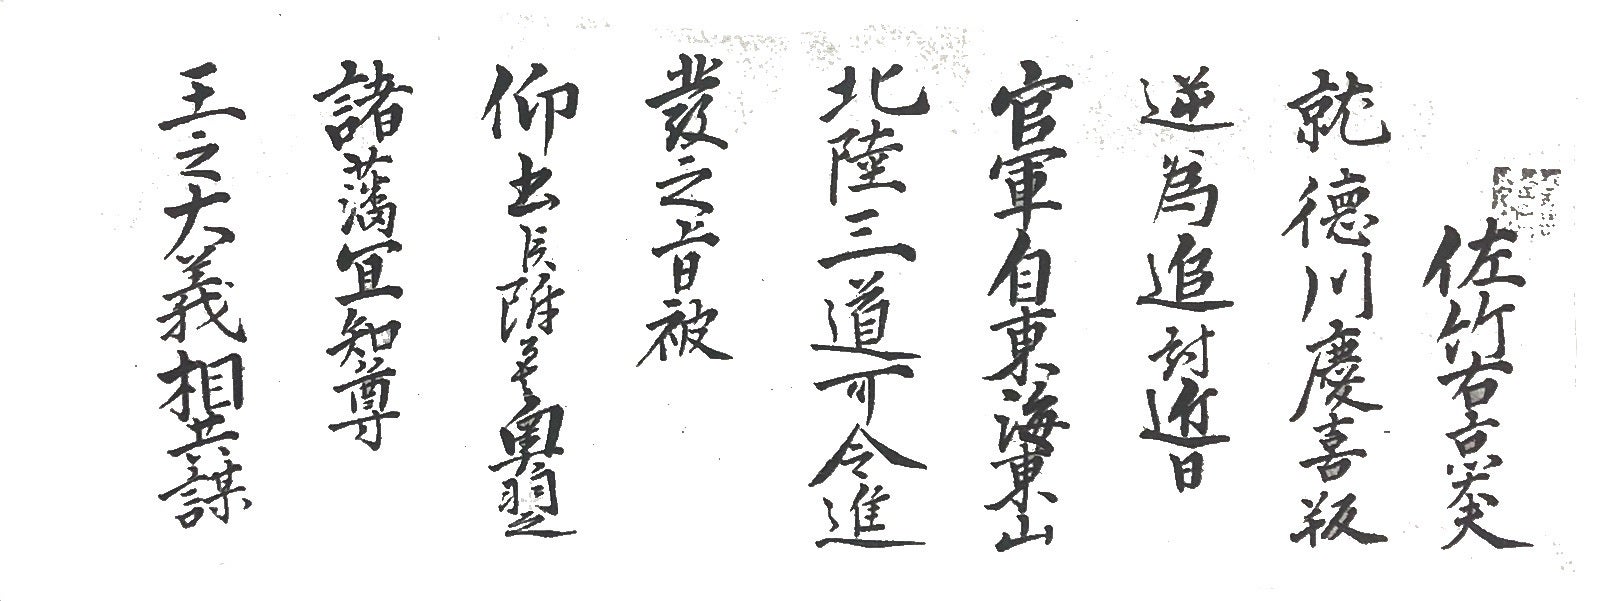 佐竹右京大夫
就徳川慶喜叛
逆為追討近日
官軍自東海東山
北陸三道可令進
發之旨被
仰出候附而者奥羽之
諸藩宜知尊
王之大義相共謀